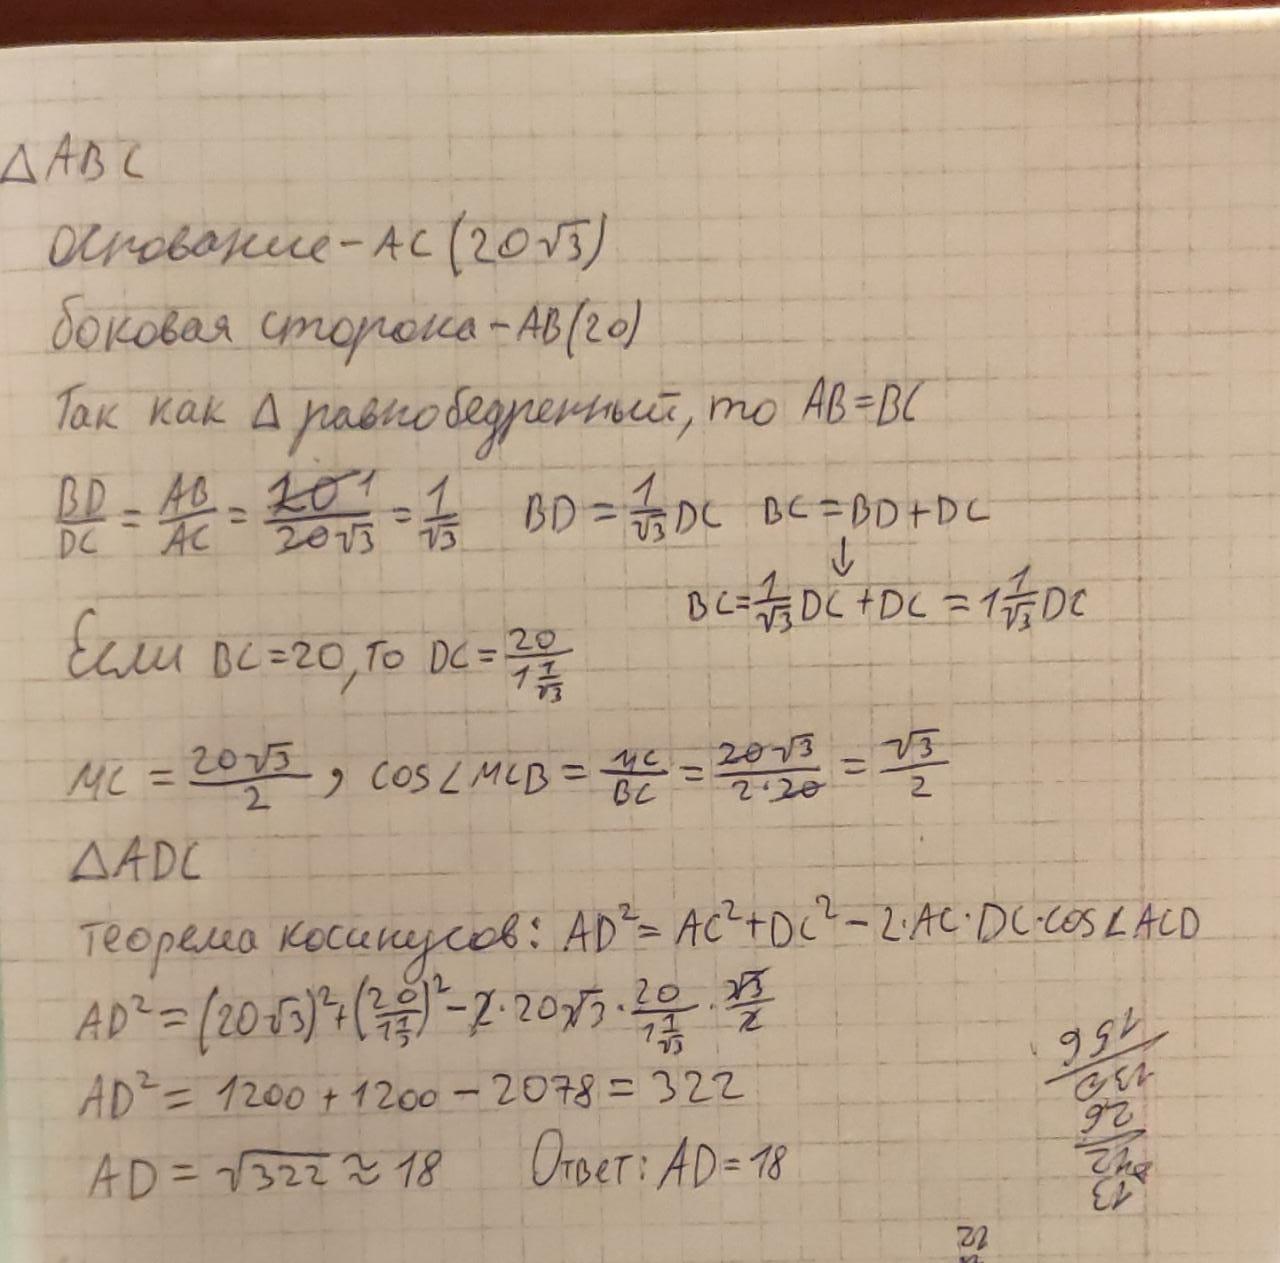 △ABC
Основание - AC (20√3)
боковая сторона - AB (20)
Так как △ равнобедренный, то AB = BC
BD/DC = AB/AC = 20 1/20√3 = 1/√3 BD = 1/√3 DC BC = BD + DC
↓
BC = 1/√3 DC + DC = 1 1/√3 DC
Если BC = 20, то DC = 20/1 1/√3
MC = 20√3/2, cos∠MCB = MC/BC = 20√3/2·20 = √3/2
△ADC
теорема косинусов: AD² = AC² + DC² - 2·AC·DC·cos∠ACD
AD² = (20√3)² + (20/1 1/3)² - 2·20√3 · 20/1 1/√3 · √3/2
AD² = 1200 + 1200 - 2078 = 322
AD = √322 ≈ 18 Ответ: AD = 18
13
26
130
156
12